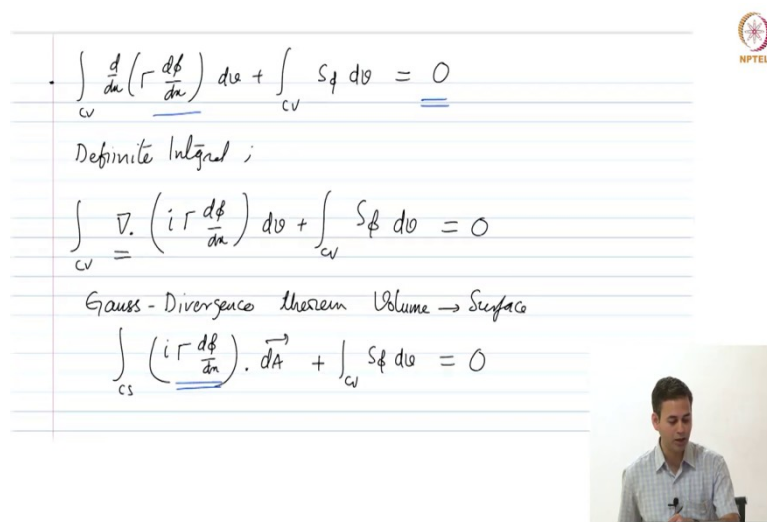 NPTEL
∫_CV d/dx (Γ dϕ/dx) dv + ∫_CV Sϕ dv = 0
Definite Integral ;
∫_CV ∇. (i Γ dϕ/dx) dv + ∫_CV Sϕ dv = 0
Gauss - Divergence theorem Volume → Surface
∫_CS (i Γ dϕ/dx) . dA⃗ + ∫_CV Sϕ dv = 0